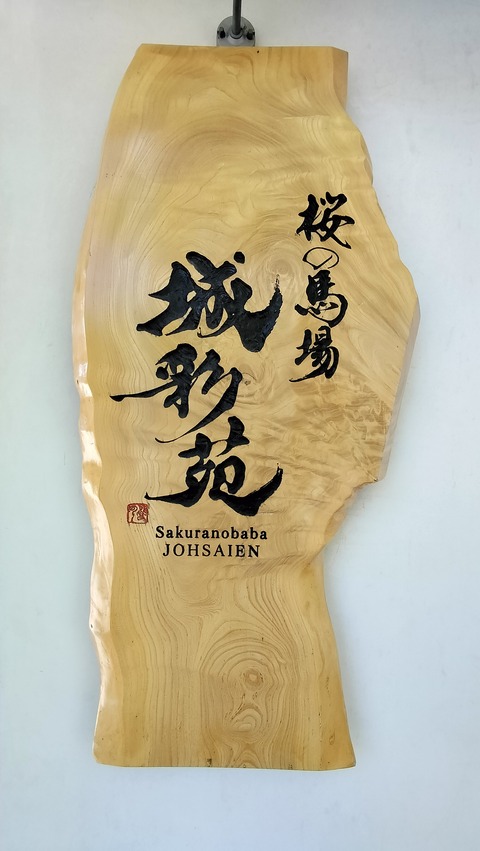 桜の馬場
城彩苑
Sakuranobaba
JOHSAIEN